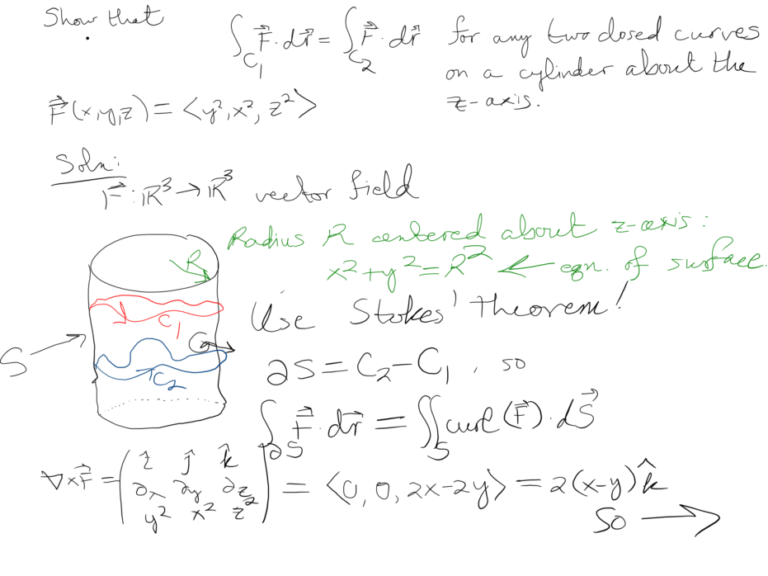 Show that
∫_C₁ F⃗·dr⃗ = ∫_C₂ F⃗·dr⃗ for any two closed curves
on a cylinder about the
z-axis.
F⃗(x,y,z) = <y², x², z²>
Soln:
F⃗: ℝ³ → ℝ³ vector field
Radius R centered about z-axis:
x²+y²=R² ← eqn. of surface.
R
C₁
Use Stokes' theorem!
S
C₂
∂S = C₂-C₁, so
∫_∂S F⃗·dr⃗ = ∬_S curl(F⃗)·dS⃗
∇×F⃗ = (î ĵ k̂
∂x ∂y ∂z
y² x² z²) = <0, 0, 2x-2y> = 2(x-y)k̂
So →